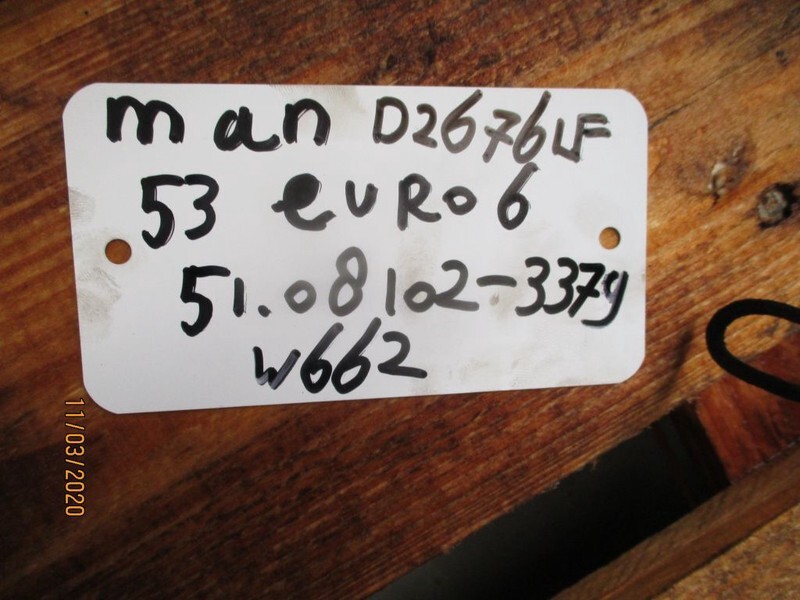 man D2676LF
53 euRo 6
51.08102-3379
w662
11/03/2020